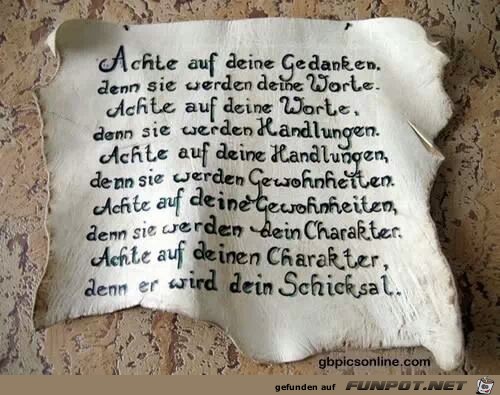 Achte auf deine Gedanken.
denn sie werden deine Worte.
Achte auf deine Worte,
denn sie werden Handlungen.
Achte auf deine Handlungen,
denn sie werden Gewohnheiten.
Achte auf deine Gewohnheiten,
denn sie werden dein Charakter.
Achte auf deinen Charakter,
denn er wird dein Schicksal.
gbpicsonline.com
gefunden auf FUNPOT.NET